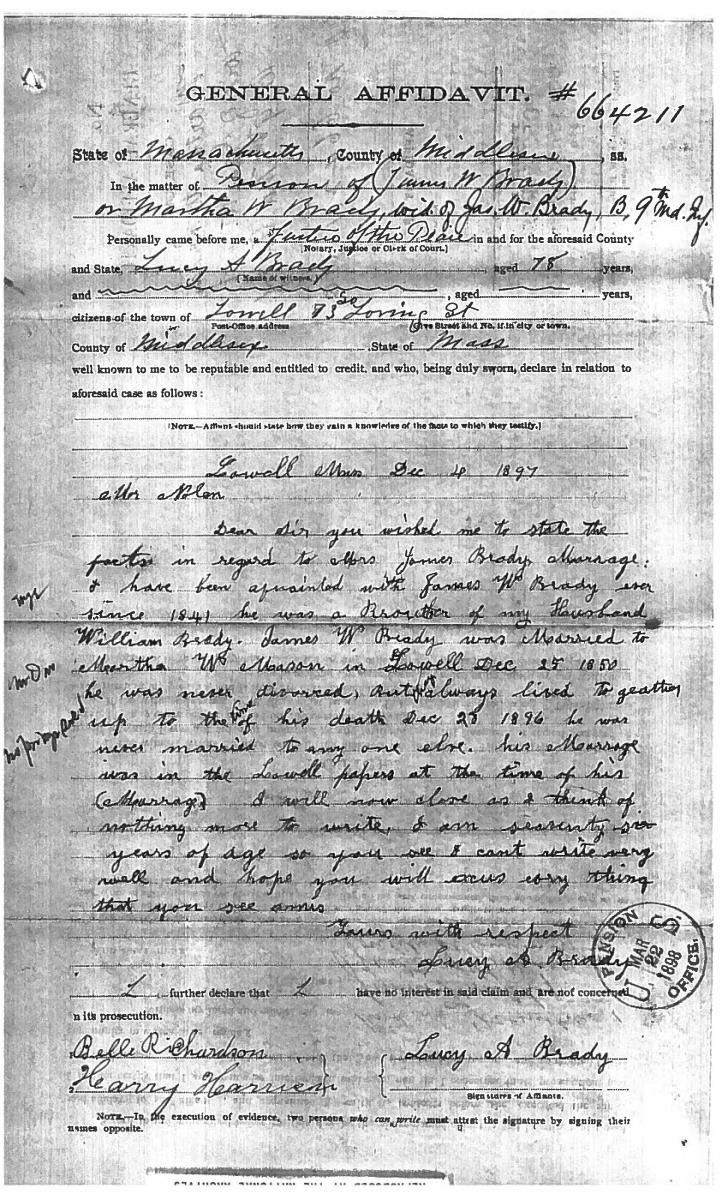 GENERAL AFFIDAVIT. #664211
State of Massachusetts, County of Middlesex, ss.
In the matter of Pension of (James W Brady)
or Martha W Brady, wid. of Jas. W. Brady, B, 9th Md. Inf.
Personally came before me, a Justice of the Peace in and for the aforesaid County
(Notary, Justice or Clerk of Court.)
and State, Lucy A Brady aged 78 years,
(Name of witness.)
and , aged years,
citizens of the town of Lowell 93 So Loring St
Post-Office address (Give Street and No. if in city or town.
County of Middlesex, State of Mass
well known to me to be reputable and entitled to credit, and who, being duly sworn, declare in relation to
aforesaid case as follows:
[NOTE.—Affiant should state how they gain a knowledge of the facts to which they testify.]
Lowell Mass Dec 4 1897
Mr Nolen
Dear Sir you wished me to state the
factes in regard to Mrs James Brady Marrage:
I have been aquainted with James W Brady ever
since 1841 he was a Brouther of my Husband
William Brady. James W Brady was Married to
Martha W Mason in Lowell Dec 25 1850
he was never divorced, but always lived to geather
up to the time of his death Dec 25 1896 he was
never married to any one else. his Marrage
was in the Lowell papers at the time of his
(Marrage) I will now close as I think of
nothing more to write, I am seaventy six
years of age so you see I cant write very
well and hope you will excus eory thing
that you see amis
Yours with respect
Lucy A Brady
PENSION OFFICE. U.S. MAR 22 1898
I further declare that I have no interest in said claim and are not concerned
n its prosecution.
Belle Richardson
Lucy A Brady
Harry Harrison
Signatures of Affiants.
NOTE.—In the execution of evidence, two persons who can write must attest the signature by signing their
names opposite.